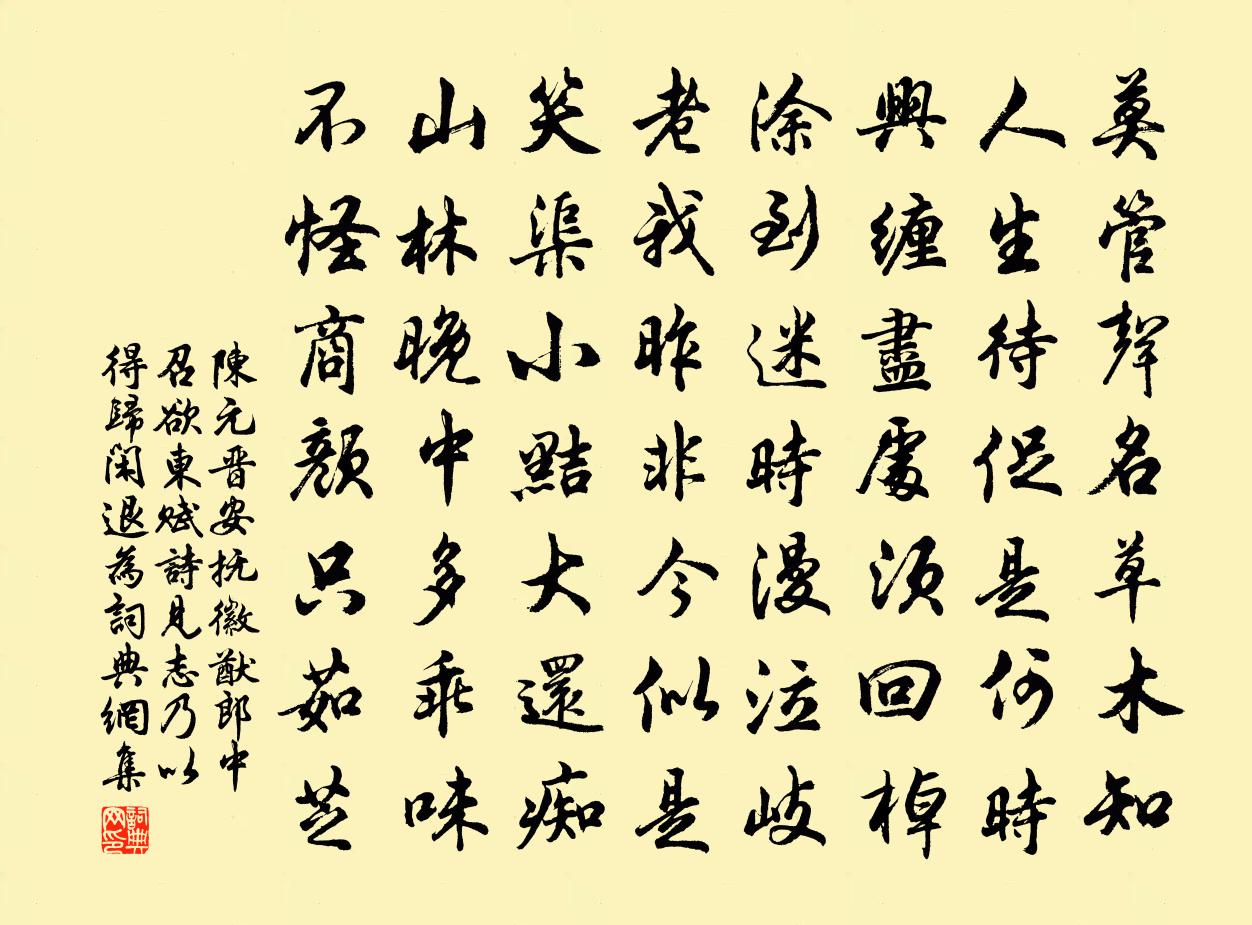 莫管聲名草木知
人生待促是何時
興纏盡處須回棹
涂到迷時漫泣歧
老我昨非今似是
笑渠小黠大還痴
山林晚中多乖味
不怪商顏只茹芝
陳元晋安抚徽猷郎中
召欲東賦詩見志乃以
得歸閑退為詞典網集
詞典
网印